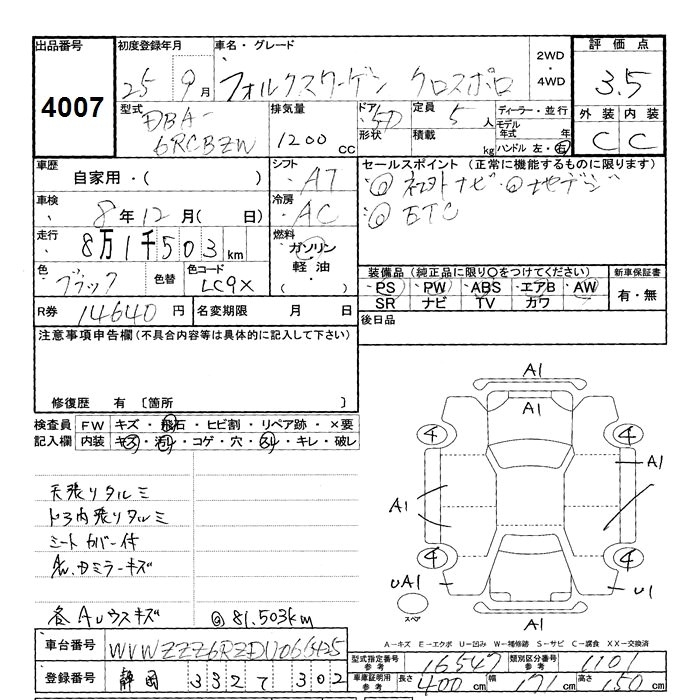 出品番号
4007
初度登録年月
25 9月
車名・グレード
フォルクスワーゲン クロスポロ
2WD
・
4WD
評価点
3.5
型式
DBA-
6RCBZW
排気量
1200 CC
ドア 5D
形状
定員 5人
積載 kg
ディーラー・並行
モデル
年式 年
ハンドル 左・右
外装 内装
C C
車歴
自家用・( )
シフト
AT
車検
8年12月( 日)
冷房
AC
走行
8万1千503km
燃料
ガソリン
・
軽油
・
( )
色
ブラック
色替
色コード
LC9X
R券 14640円
名変期限 月 日
セールスポイント(正常に機能するものに限ります)
◎ ナビ・◎地デジ
◎ETC
装備品(純正品に限り○をつけてください)
・PS)・PW)・ABS・エアB・AW
SR ナビ TV カワ
新車保証書
有・無
後日品
注意事項申告欄(不具合内容等は具体的に記入して下さい)
修復歴 有 〔箇所 〕
検査員
記入欄
FW キズ・飛石・ヒビ割・リペア跡・×要
内装 キズ・汚れ・コゲ・穴・スレ・キレ・破レ
天張リタルミ
ドア内張リタルミ
シートカバー付
AW.Dミラーキズ
各AWウスキズ
◎81,503km
A1
A1
4
4
A1
A1
4
4
UA1
U1
A1
スペア
A-キズ E-エクボ U-凹み W-補修跡 S-サビ C-腐食 XX-交換済
車台番号
登録番号 静岡 332 て 302
型式指定番号
参考
16547
類別区分番号
参考
1101
車庫証明用
参考
長さ 400cm 幅 171cm 高さ 150cm